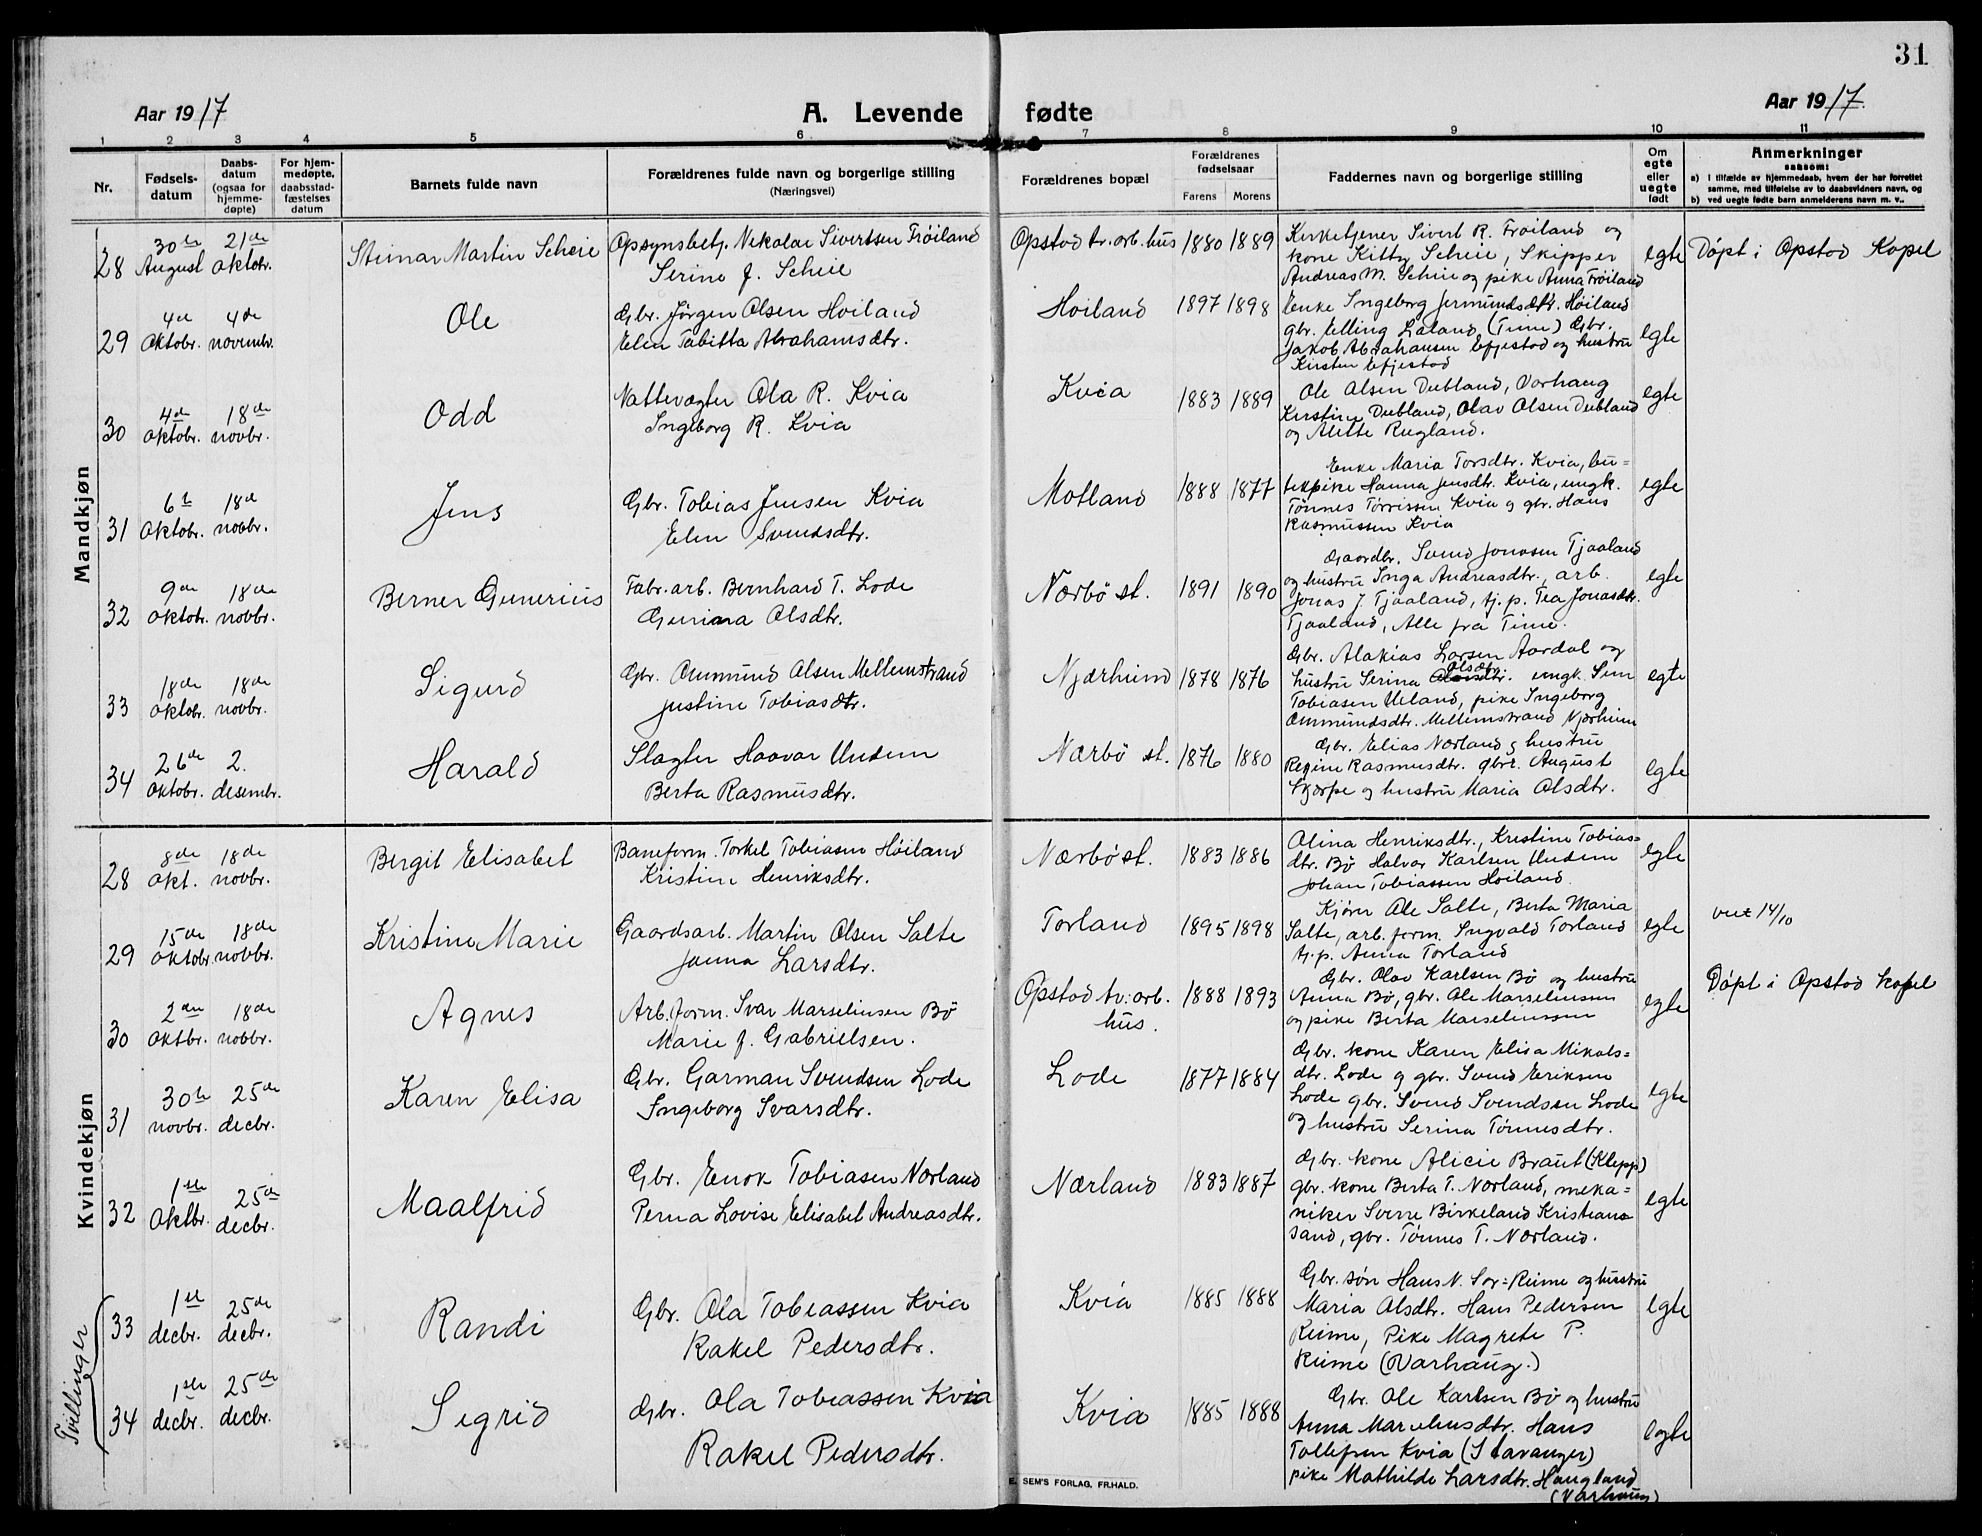 31
Aar 1917
A. Levende fødte
Aar 1917
1 2 3 4 5 6 7 8 9 10 11
Nr.
Fødsels-
datum
Daabs-
datum
(ogsaa for
hjemme-
døpte)
For hjem-
medøpte,
daabsstad-
fæstelses
datum
Barnets fulde navn
Forældrenes fulde navn og borgerlige stilling
(Næringsvei)
Forældrenes bopæl
Forældrenes
fødselsaar
Farens Morens
Faddernes navn og borgerlige stilling
Om
egte
eller
uegte
født
Anmerkninger
saasom:
a) I tilfælde av hjemmedaab, hvem der har forrettet
samme, med tilføielse av to daabsvidners navn, og
b) ved uegte fødte barn anmelderens navn m. v.
Mandkjøn
28 30te August 21de Oktobr. Steinar Martin Scheie
Opsynsbetj. Nikolai Sivertsen Trøiland
Serine f. Scheie
Opstad tv. arb. hus 1880 1889
Kirketjener Sivert R. Trøiland og
kone Kitty Scheie, Skipper
Andreas M. Scheie og pike Anna Trøiland
egte
Døpt i Opstad Kapel
29 4de Oktobr. 4de novembr. Ole
Gbr. Jørgen Olsen Høiland
Elen Tabitta Abrahamsdtr.
Høiland 1897 1898
Enke Ingeborg Jermundsdtr. Høiland
gbr. Elling Laland (Time) Gbr.
Jakob Abrahamsen Efjestad og hustru
Kirsten Efjestad
egte
30 4de Oktobr. 18de novbr. Odd
Nattevægter Ola R. Kvia
Ingeborg R. Kvia
Kvia 1883 1889
Ole Olsen Dubland, Varhaug
Kirstine Dubland, Olav Olsen Dubland
og Alette Rugland.
egte
31 6te Oktobr. 18de novbr. Jens
Gbr. Tobias Jensen Kvia
Elen Svendsdtr.
Motland 1888 1877
Enke Maria Torsdtr. Kvia, bu=
tikpike Hanna Jensdtr. Kvia, ungk.
Tønnes Tørrissen Kvia og gbr. Hans
Rasmussen Kvia
egte
32 9de Oktobr. 18de novbr. Berner Gunerius
Fabr. arb. Bernhard T. Lode
Guriana Olsdtr.
Nærbø st. 1891 1890
Gaardbr. Svend Jonasen Tjaaland
og hustru Inga Andreasdtr., arb.
Jonas J. Tjaaland, tj. p. Tea Jonasdtr.
Tjaaland, Alle fra Time.
egte
33 18de Oktobr. 18de novbr. Sigurd
Gbr. Ommund Olsen Mellemstrand
Justine Tobiasdtr.
Njærheim 1878 1876
Gbr. Malakias Larsen Aardal og
hustru Serina Olsdtr. ungk. Sem
Tobiasen Ueland, pike Ingeborg
Ommundsdtr. Mellemstrand Njærheim
egte
34 26de Oktobr. 2. desembr. Harald
Slagter Haavar Undem
Berta Rasmusdtr.
Nærbø st. 1876 1880
Gbr. Elias Nærland og hustru
Regine Rasmusdtr. gbr. August
Skjærpe og hustru Maria Olsdtr.
egte
Kvindekjøn
28 8de Okt. 18de novbr. Bergit Elisabet
Baneform. Torkel Tobiasen Høiland
Kristine Henriksdtr.
Nærbø st. 1883 1886
Olina Henriksdtr., Kristine Tobias=
dtr. Bø Halvor Karlsen Undem
Johan Tobiassen Høiland
egte
29 15de Oktobr. 18de novbr. Kristine Marie
Gaardsarb. Martin Olsen Salte
Janna Larsdtr.
Torland 1895 1898
Kjører Ole Salte, Berta Maria
Salte, arb. form. Ingvald Torland
tj. p. Anna Torland
egte
14/10
30 2den Oktbr. 18de novbr. Agnes
Arb. form. Ivar Marseliusen Bø
Marie f. Gabrielsen.
Opstad tv: arb.
hus. 1888 1893
Gbr. Olav Karlsen Bø og hustru
Anna Bø, gbr. Ole Marseliussen
og pike Berta Marseliussen
egte
Døpt i Opstad kapel
31 30te novbr. 25de decbr. Karen Elisa
Gbr. Garman Svendsen Lode
Ingeborg Ivarsdtr.
Lode 1877 1884
Gbr. kone Karen Elisa Mikals=
dtr. Lode og gbr. Svend Eriksen
Lode gbr. Svend Svendsen Lode
og hustru Serina Tønnesdtr.
egte
32 1ste Oktbr. 25de decbr. Maalfrid
Gbr. Enok Tobiasen Nærland
Perna Lovise Elisabet Andreasdtr.
Nærland 1883 1887
Gbr. kone Alicie Braut (Klepp)
gbr. kone Berta T. Nærland, meka=
niker Sverre Birkeland Kristian=
sand, gbr. Tønnes T. Nærland.
egte
Tvillinger
33 1ste decbr. 25de decbr. Randi
Gbr. Ola Tobiassen Kvia
Rakel Pedersdtr.
Kvia 1885 1888
Gbr. søn Hans N. Sør=Reime og hustru
Maria Olsdtr. Hans Pedersen
Reime, Pike Magrete P.
Reime (Varhaug.)
egte
34 1ste decbr. 25de decbr. Sigrid
Gbr. Ola Tobiassen Kvia
Rakel Pedersdtr.
Kvia 1885 1888
Gbr. Ole Karlsen Bø og hustru
Anna Marseliusdtr. Hans
Tollefsen Kvia (Stavanger)
pike Mathilde Larsdtr. Haugland
(Varhaug)
egte
E. SEM'S FORLAG, FR.HALD.